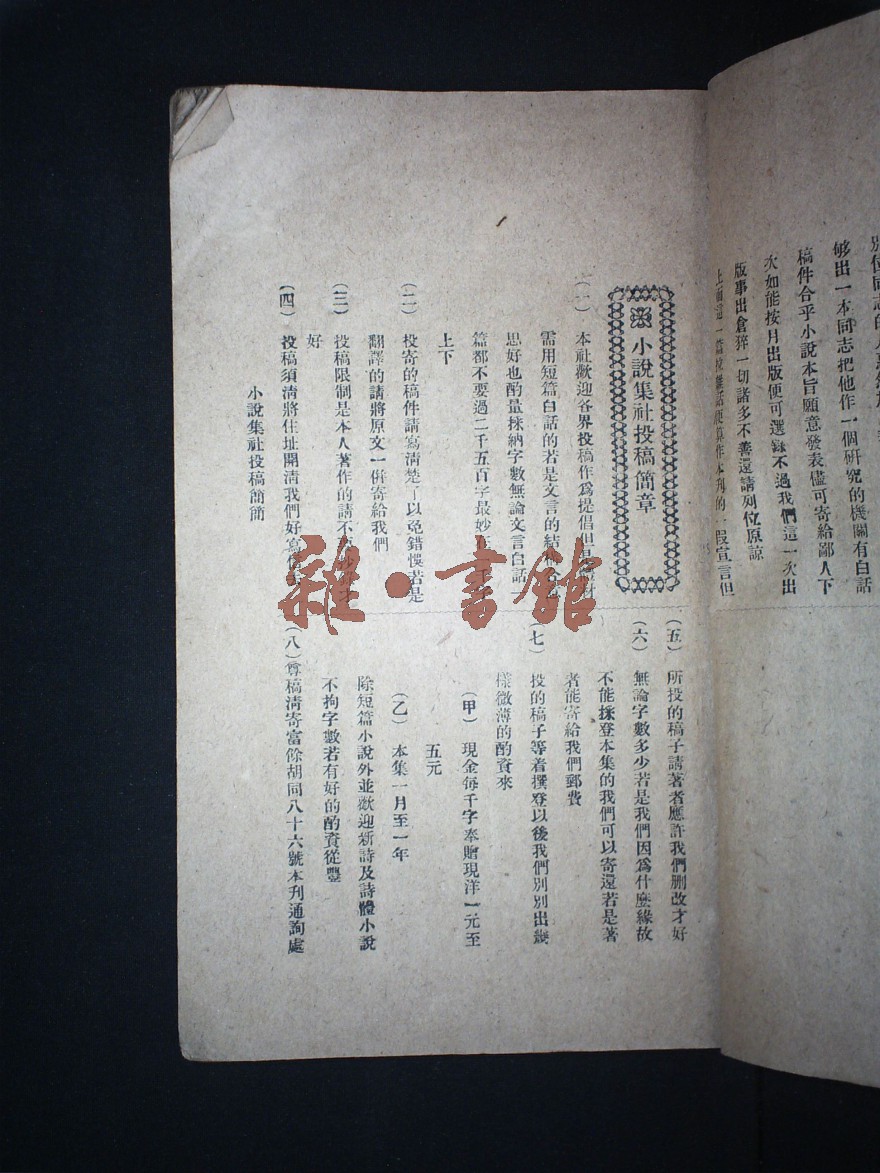 够出一本同志把他作一個研究的機關有白話
稿件合乎小說本旨願意發表儘可寄給鄙人下
次如能按月出版便可選錄不過我們這一次出
版事出倉猝一切諸多不善還請列位原諒
小說集社投稿簡章
(一) 本社歡迎各界投稿作爲提倡但
需用短篇白話的若是文言的結
思好也酌量採納字數無論文言白話一
篇都不要過二千五百字最妙
上下
(二) 投寄的稿件請寫清楚一以免錯悞若是
翻譯的請將原文一併寄給我們
(三) 投稿限制是本人著作的請不
好
(四) 投稿須清將住址開清我們好寫
小說集社投稿簡簡
(五) 所投的稿子請著者應許我們删改才好
(六) 無論字數多少若是我們因爲什麼緣故
不能採登本集的我們可以寄還若是著
者能寄給我們郵費
(七) 投的稿子等着撰登以後我們別別出幾
樣微薄的酌資來
(甲) 現金每千字奉贈現洋一元至
五元
(乙) 本集一月至一年
除短篇小說外並歡迎新詩及詩體小說
不拘字數若有好的酌資從豐
(八) 尊稿清寄富餘胡同八十六號本刋通詢處
雜·書館